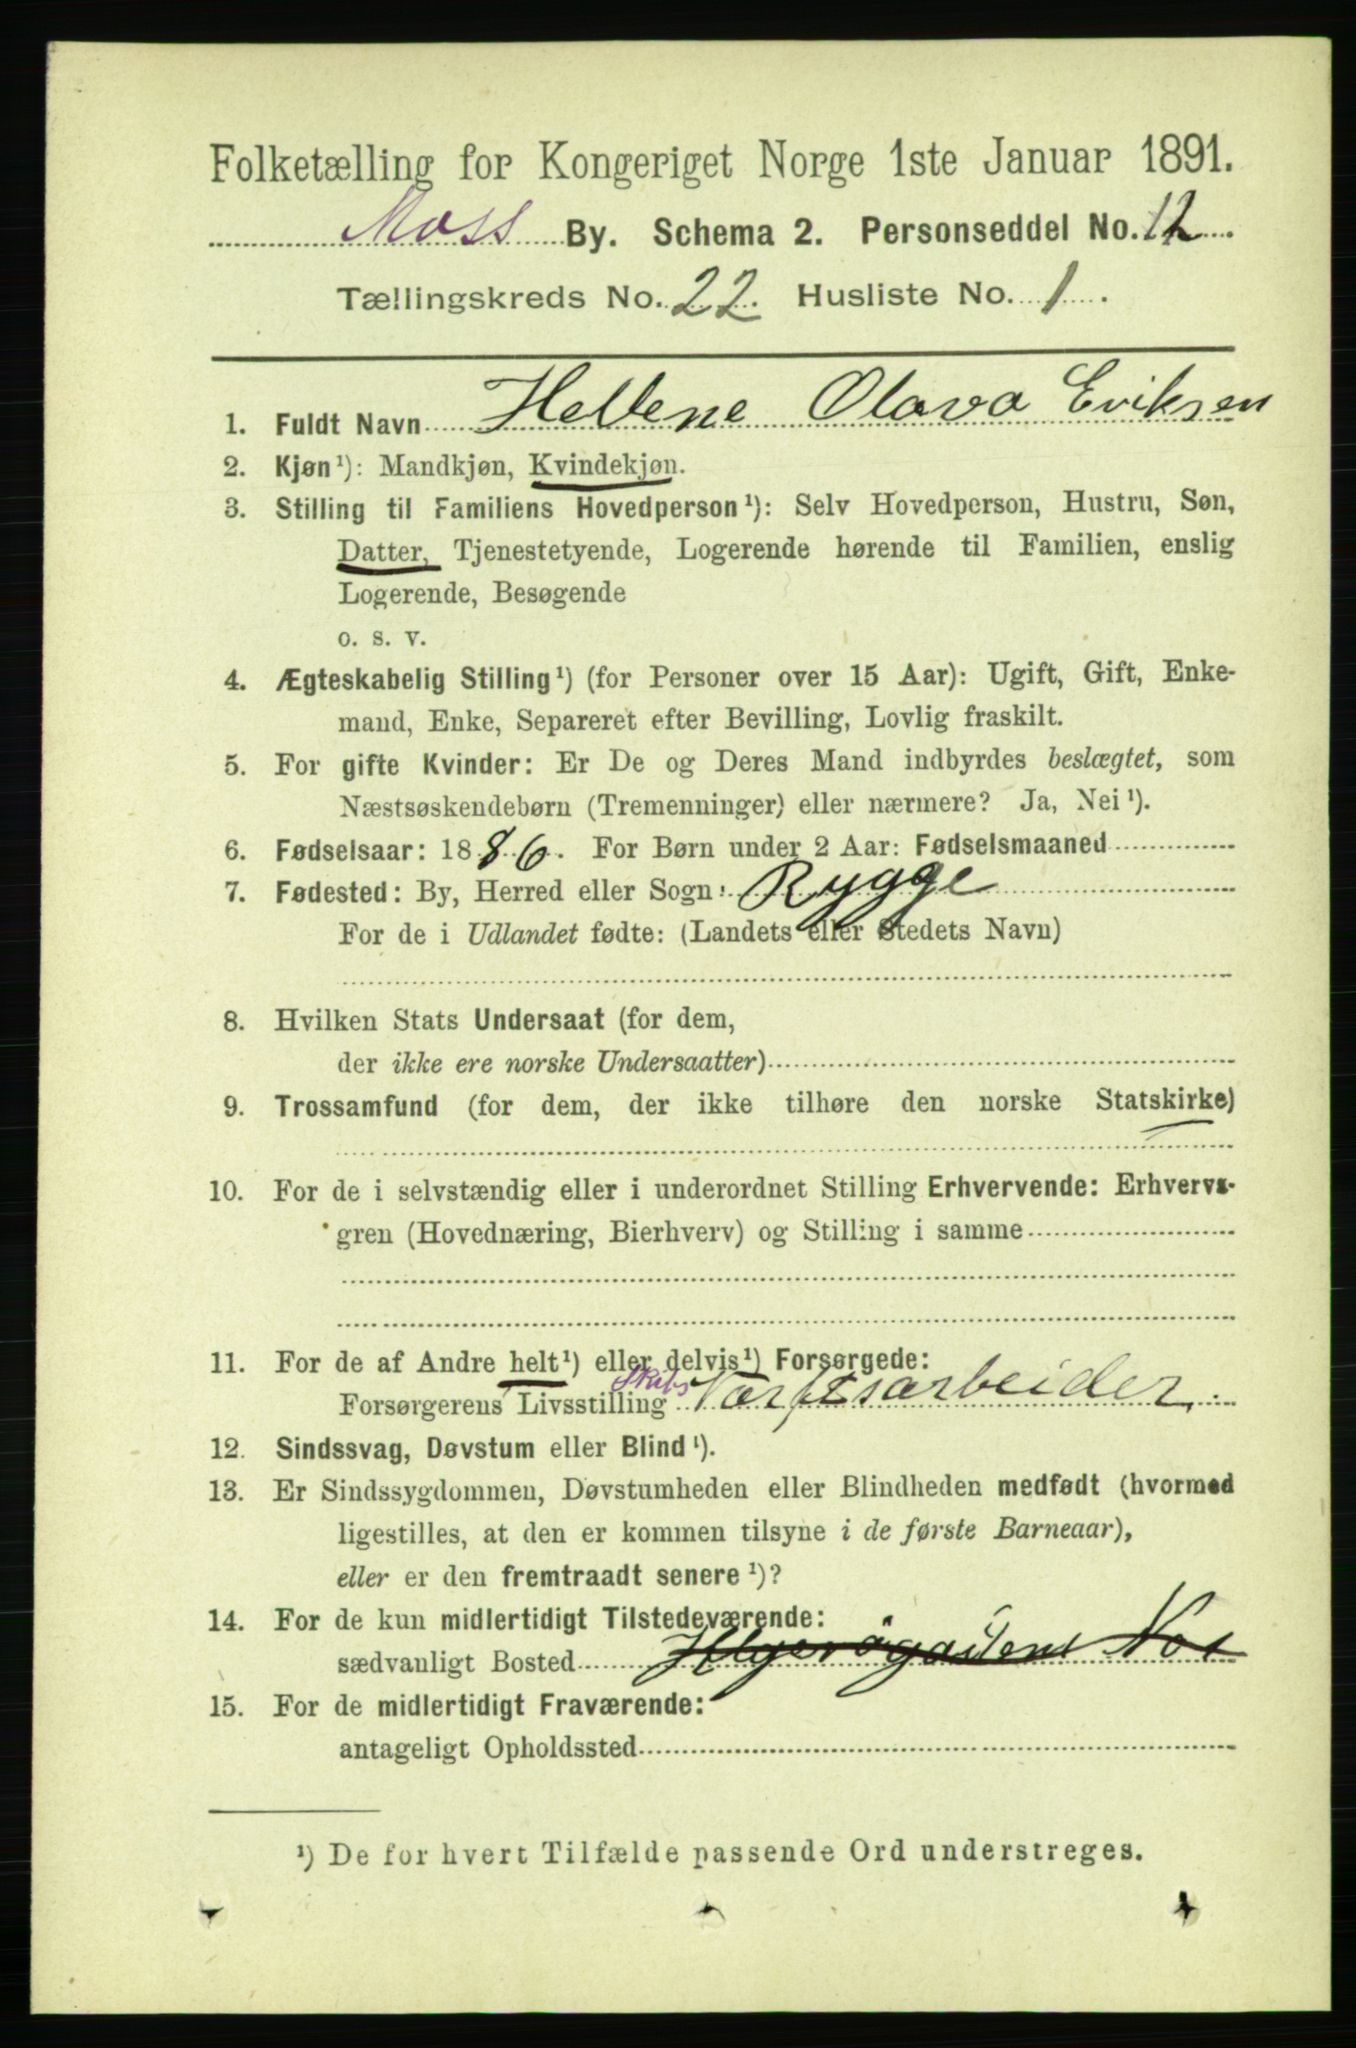 Folketælling for Kongeriget Norge 1ste Januar 1891.
Moss By. Schema 2. Personseddel No. 12
Tællingskreds No. 22. Husliste No. 1.
1. Fuldt Navn Hellene Olava Eriksen
2. Kjøn¹): Mandkjøn, Kvindekjøn.
3. Stilling til Familiens Hovedperson¹): Selv Hovedperson, Hustru, Søn,
Datter, Tjenestetyende, Logerende hørende til Familien, enslig
Logerende, Besøgende
o. s. v.
4. Ægteskabelig Stilling¹) (for Personer over 15 Aar): Ugift, Gift, Enke-
mand, Enke, Separeret efter Bevilling, Lovlig fraskilt.
5. For gifte Kvinder: Er De og Deres Mand indbyrdes beslægtet, som
Næstsøskendebørn (Tremenninger) eller nærmere? Ja, Nei¹).
6. Fødselsaar: 1886. For Børn under 2 Aar: Fødselsmaaned
7. Fødested: By, Herred eller Sogn: Rygge
For de i Udlandet fødte: (Landets eller Stedets Navn)
8. Hvilken Stats Undersaat (for dem,
der ikke ere norske Undersaatter)
9. Trossamfund (for dem, der ikke tilhøre den norske Statskirke)
10. For de i selvstændig eller i underordnet Stilling Erhvervende: Erhvervs-
gren (Hovednæring, Bierhverv) og Stilling i samme
11. For de af Andre helt¹) eller delvis¹) Forsørgede:
Forsørgerens Livsstilling Skibs Værftsarbeider.
12. Sindssvag, Døvstum eller Blind¹).
13. Er Sindssygdommen, Døvstumheden eller Blindheden medfødt (hvormed
ligestilles, at den er kommen tilsyne i de første Barneaar),
eller er den fremtraadt senere¹)?
14. For de kun midlertidigt Tilstedeværende:
sædvanligt Bosted
15. For de midlertidigt Fraværende:
antageligt Opholdssted
¹) De for hvert Tilfælde passende Ord understreges.